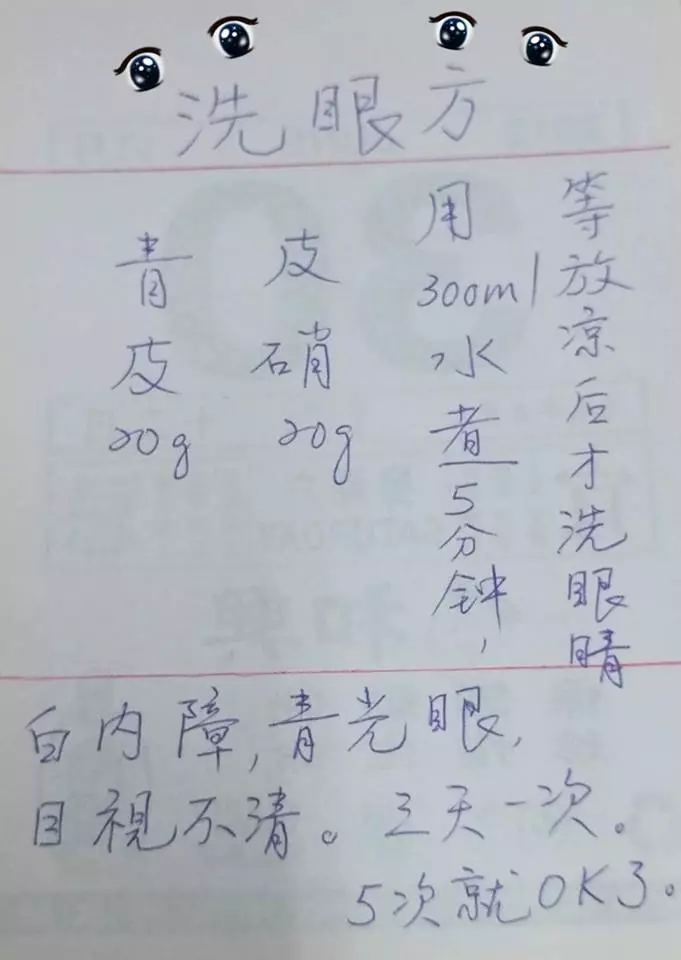 洗眼方
青皮20g
皮硝20g
用300ml水煮5分钟，
等放凉后才洗眼睛
白内障，青光眼，
目視不清。三天一次。
5次就OK了。